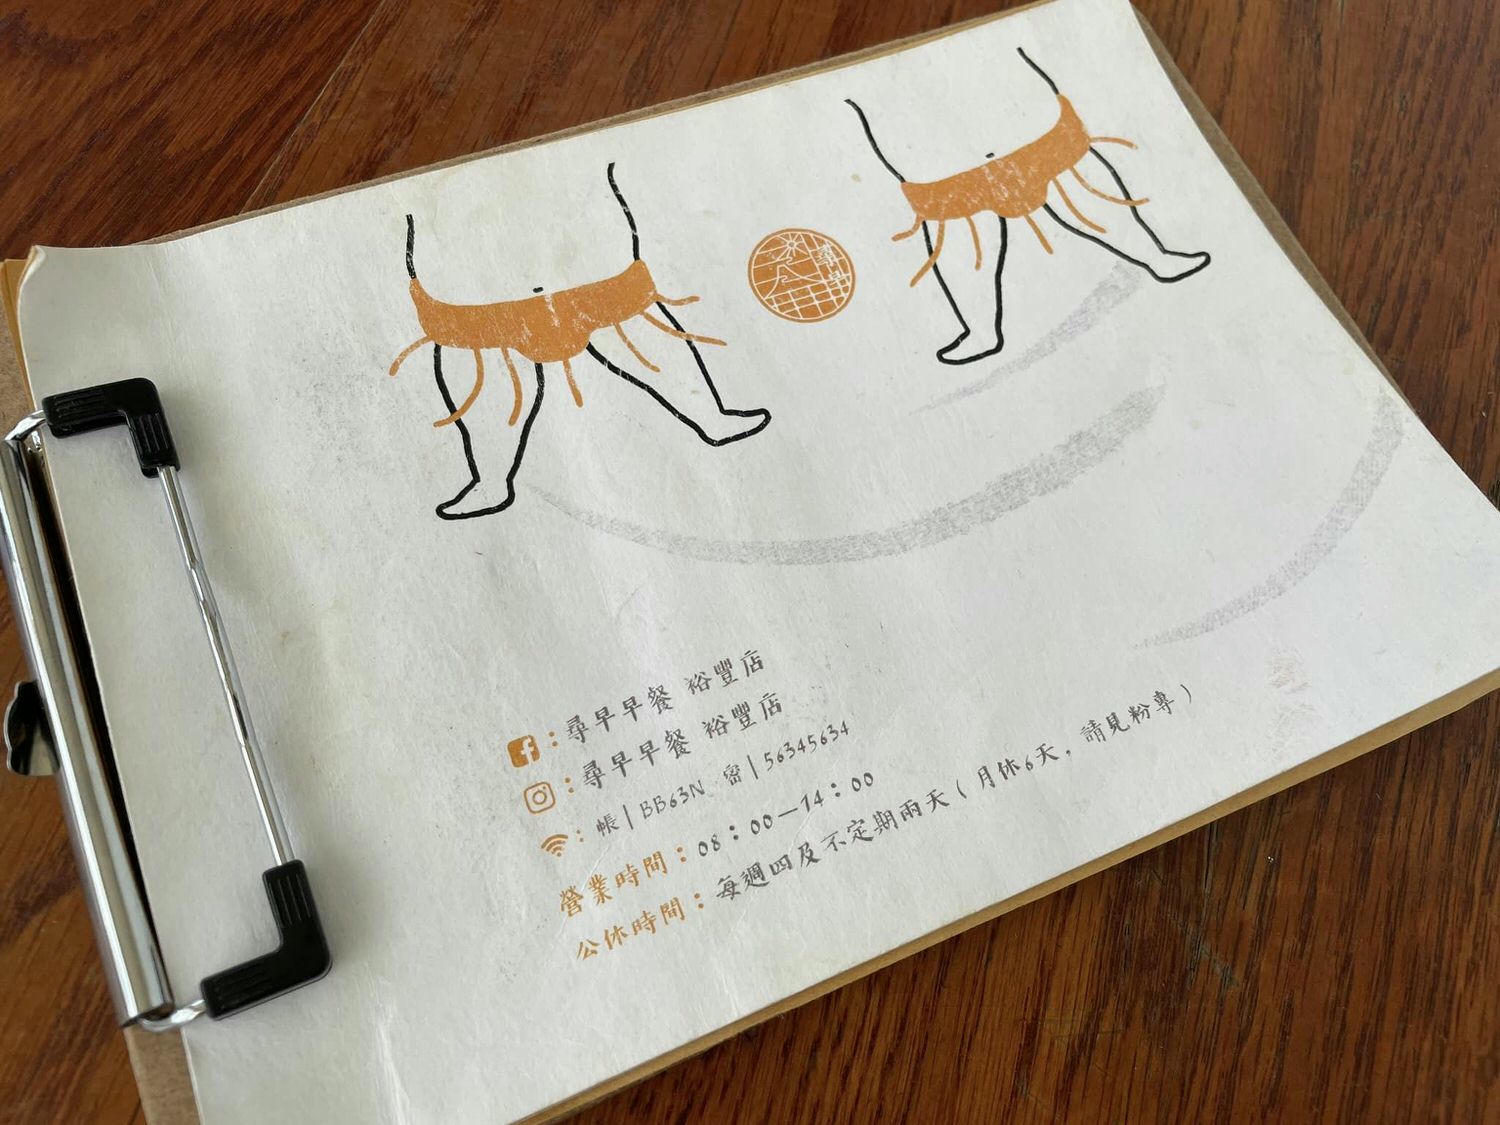 ：尋早早餐 裕豐店
：尋早早餐 裕豐店
：帳|BB63N 密|56345634
營業時間：08：00—14：00
公休時間：每週四及不定期兩天（月休6天，請見粉專）